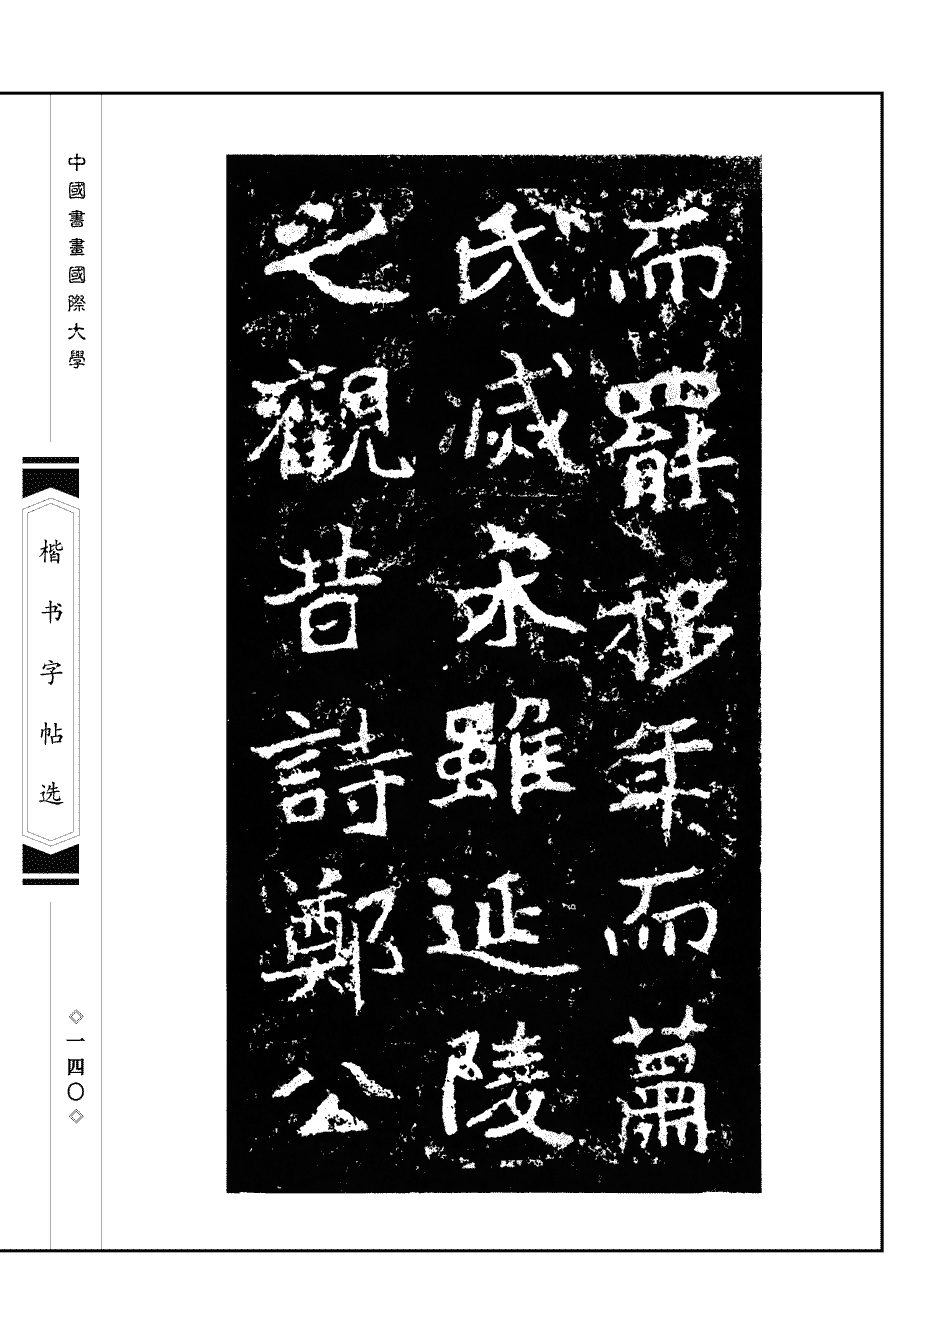 而罷稔年而蕭
氏滅宋雖延陵
之觀昔詩鄭公
中國書畫國際大學
楷书字帖选
一四〇